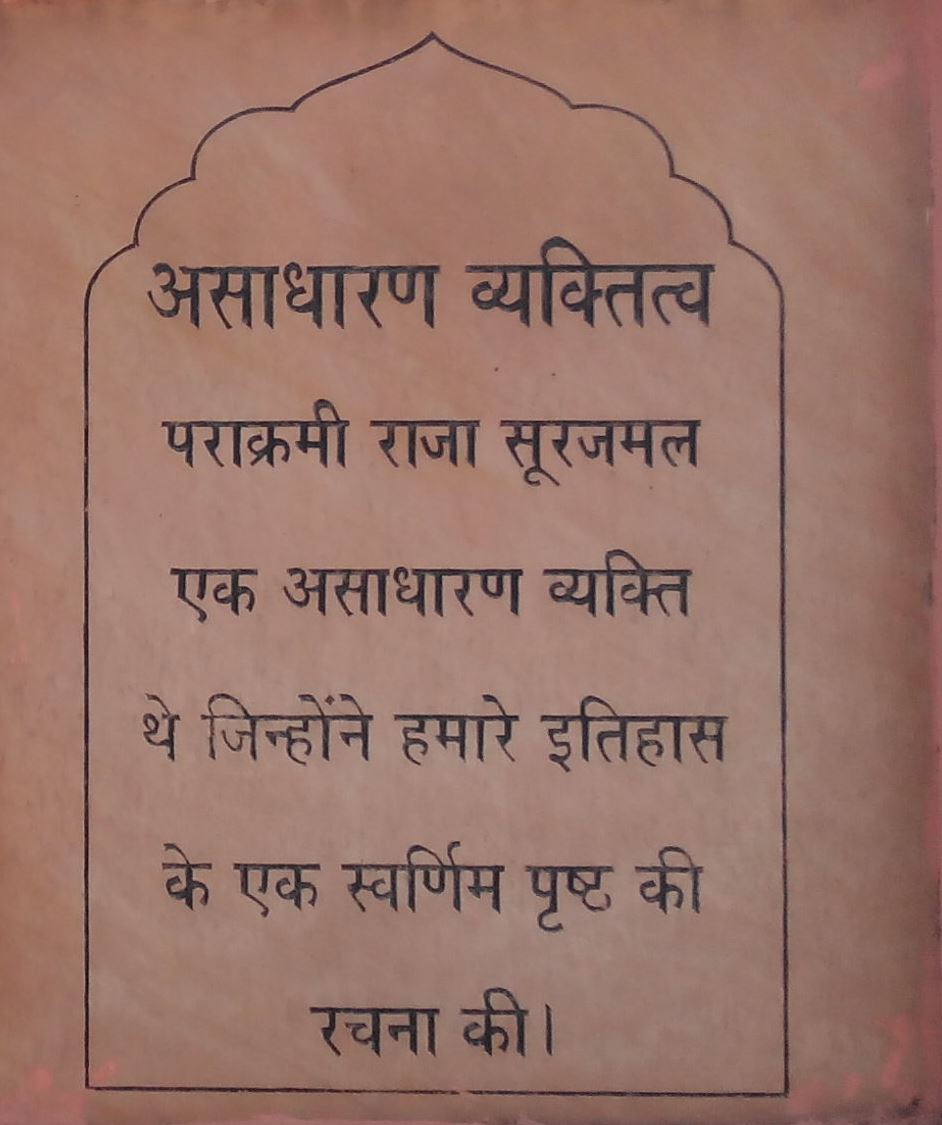 असाधारण व्यक्तित्व
पराक्रमी राजा सूरजमल
एक असाधारण व्यक्ति
थे जिन्होंने हमारे इतिहास
के एक स्वर्णिम पृष्ट की
रचना की।